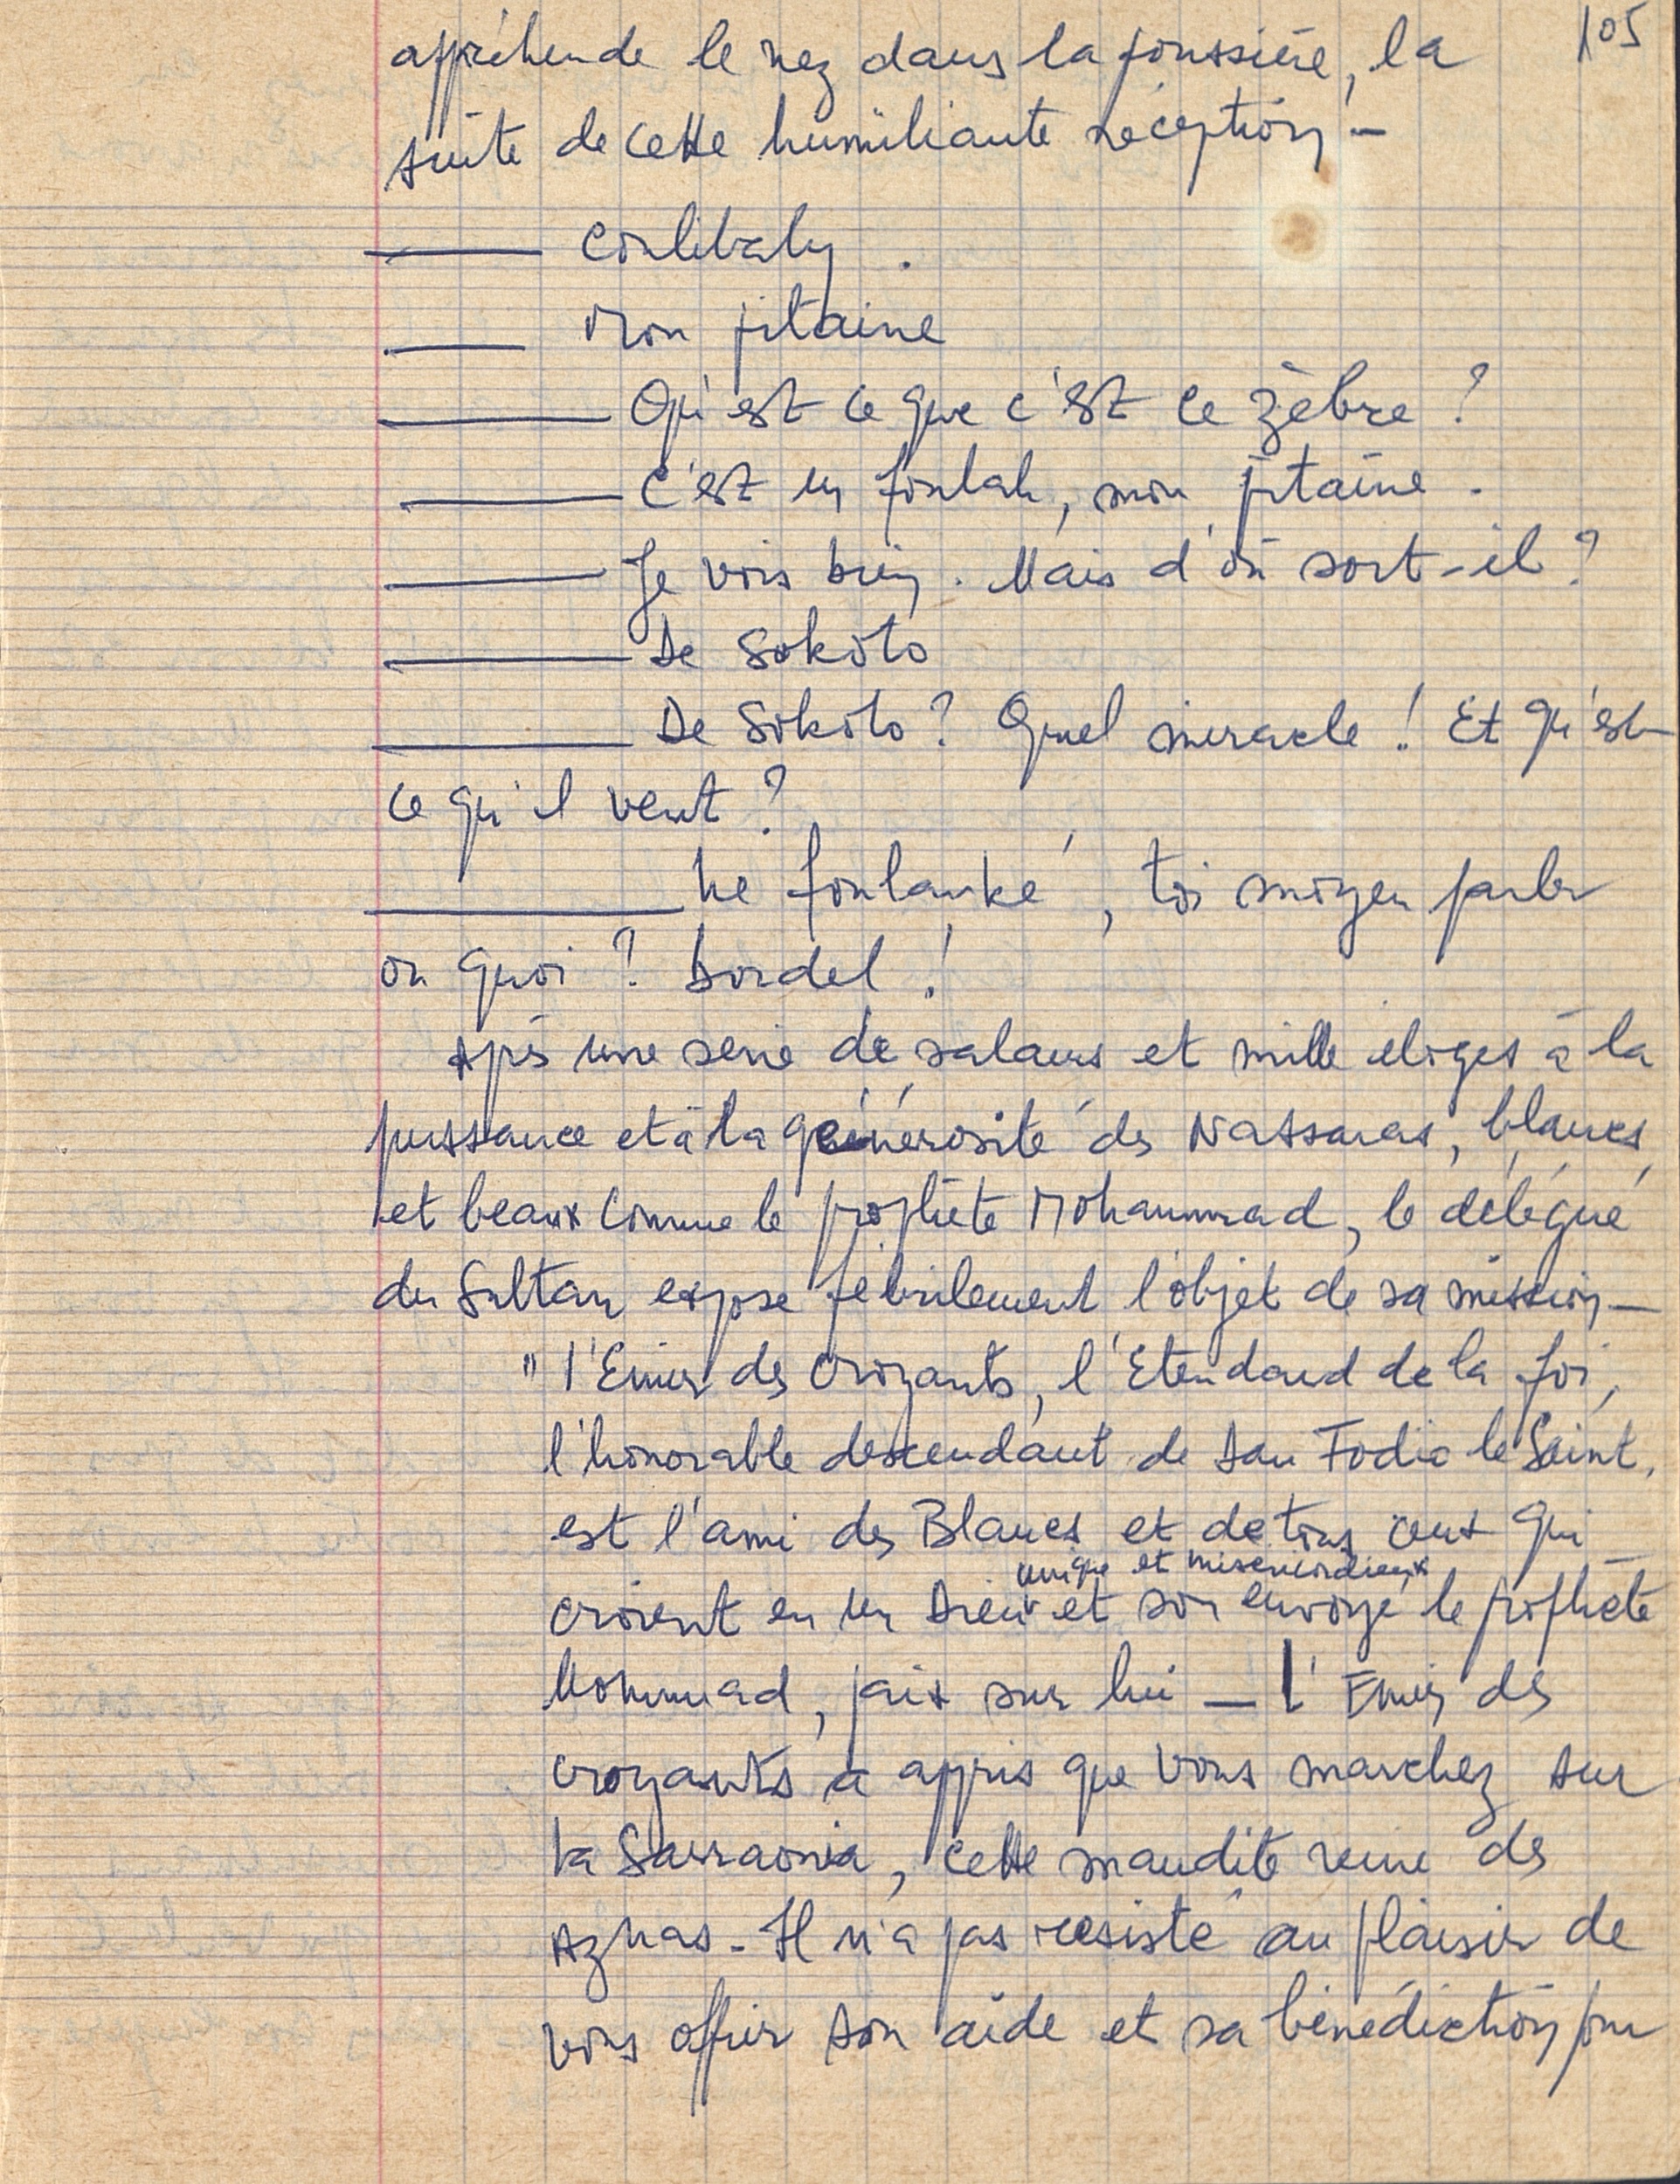 105
appréhende le nez dans la poussière, la
suite de cette humiliante réception —
—— Coulibaly.
—— Mon pitaine
—— Qu'est ce que c'est ce zèbre ?
—— C'est un foulah, mon pitaine.
—— Je vois bien. Mais d'où sort-il ?
—— De Sokoto
—— De Sokoto ? Quel miracle ! Et qu'est-
ce qu'il veut ?
—— hé foulanké, toi moyen parler
ou quoi ? bordel !
Après une série de salams et mille éloges à la
puissance et à la générosité des Nassaras, blancs
et beaux comme le prophète Mohammad, le délégué
du Sultan expose fébrilement l'objet de sa mission —
" l'Emir des croyants, l'Etendard de la foi,
l'honorable descendant de Dan Fodio le Saint,
est l'ami des Blancs et de tous ceux qui
unique et miséricordieux
croient en un Dieu et son envoyé le prophète
Mohmmad, paix sur lui — l'Emir des
croyants a appris que vous marchez sur
la Sarraonia, cette maudite reine des
Aznas - Il n'a pas résisté au plaisir de
vous offrir son aide et sa bénédiction pour